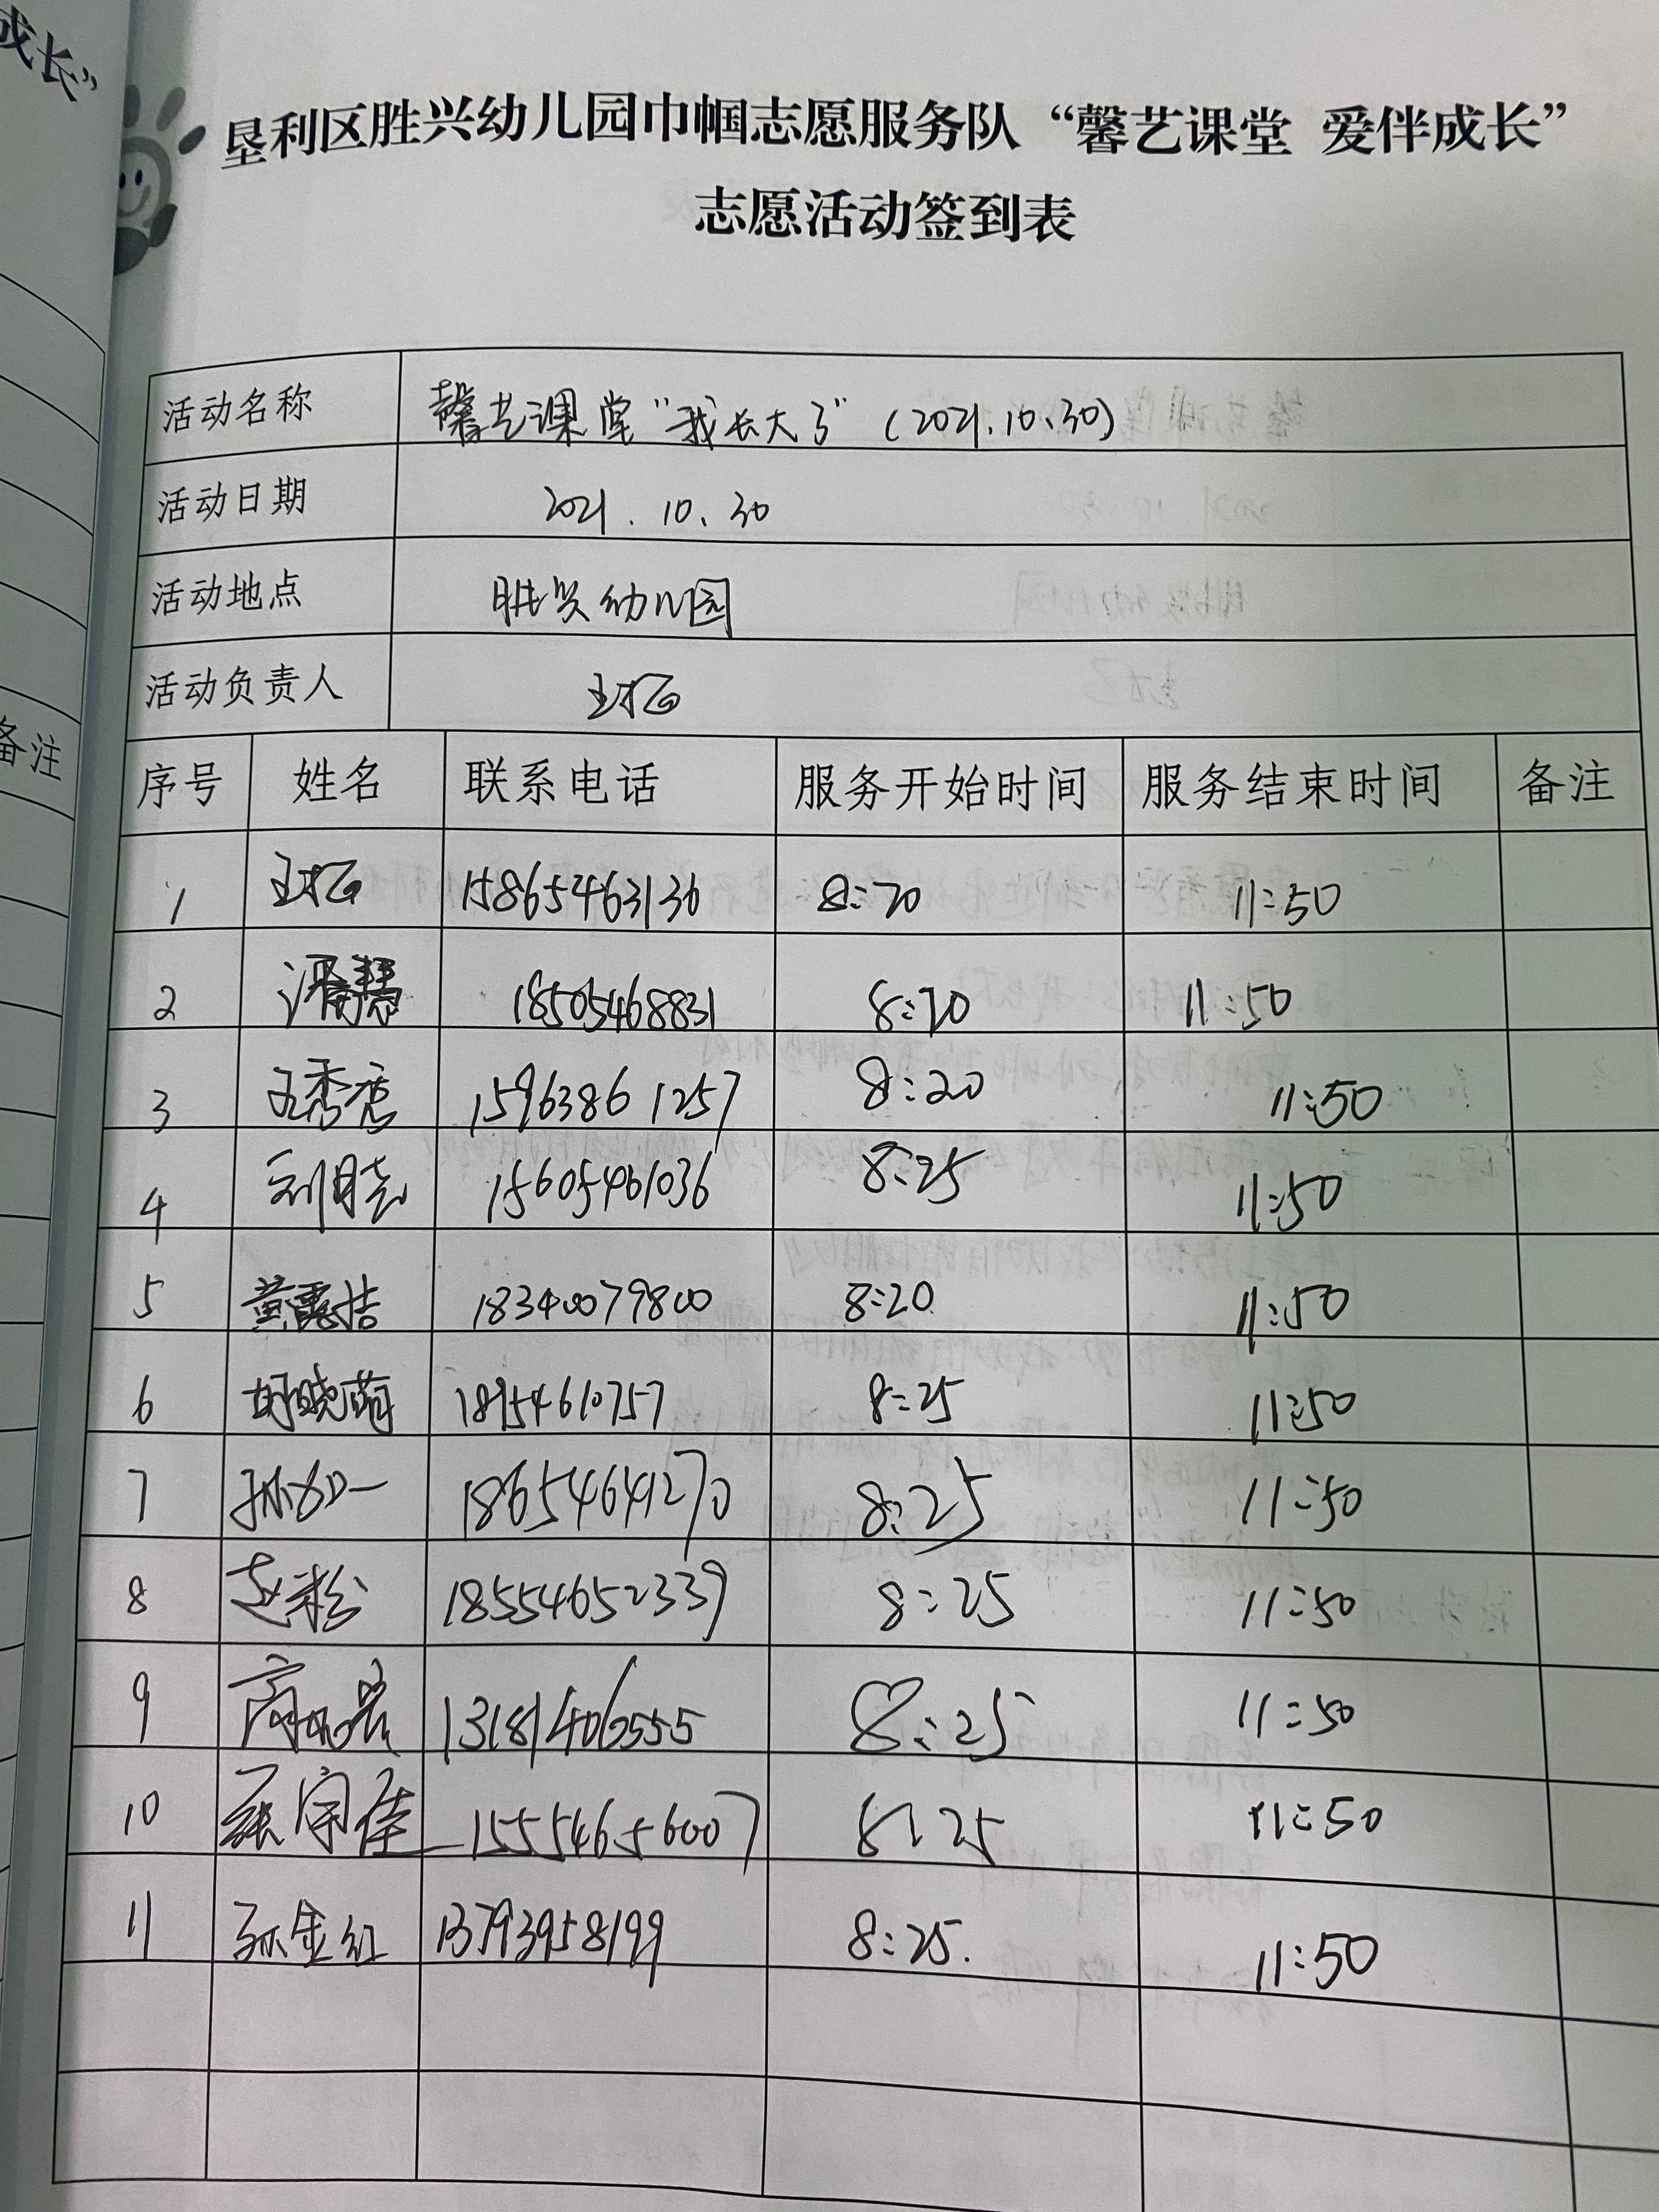 成长”
备注
垦利区胜兴幼儿园巾帼志愿服务队“馨艺课堂 爱伴成长”
志愿活动签到表
活动名称 馨艺课堂“我长大了”(2021.10.30)
活动日期 2021.10.30
活动地点 胜兴幼儿园
活动负责人
序号 姓名 联系电话 服务开始时间 服务结束时间 备注
1 15865463130 8:20 11:50
2 潘慧 18505468831 8:20 11:50
3 15963861257 8:20 11:50
4 刘晓 15605461036 8:25 11:50
5 18340079800 8:20 11:50
6 胡晓萌 18954610757 8:25 11:50
7 孙如一 18654641270 8:25 11:50
8 赵粉 18554652339 8:25 11:50
9 13181406555 8:25 11:50
10 15554656007 8:25 11:50
11 孙金红 13793958199 8:25. 11:50